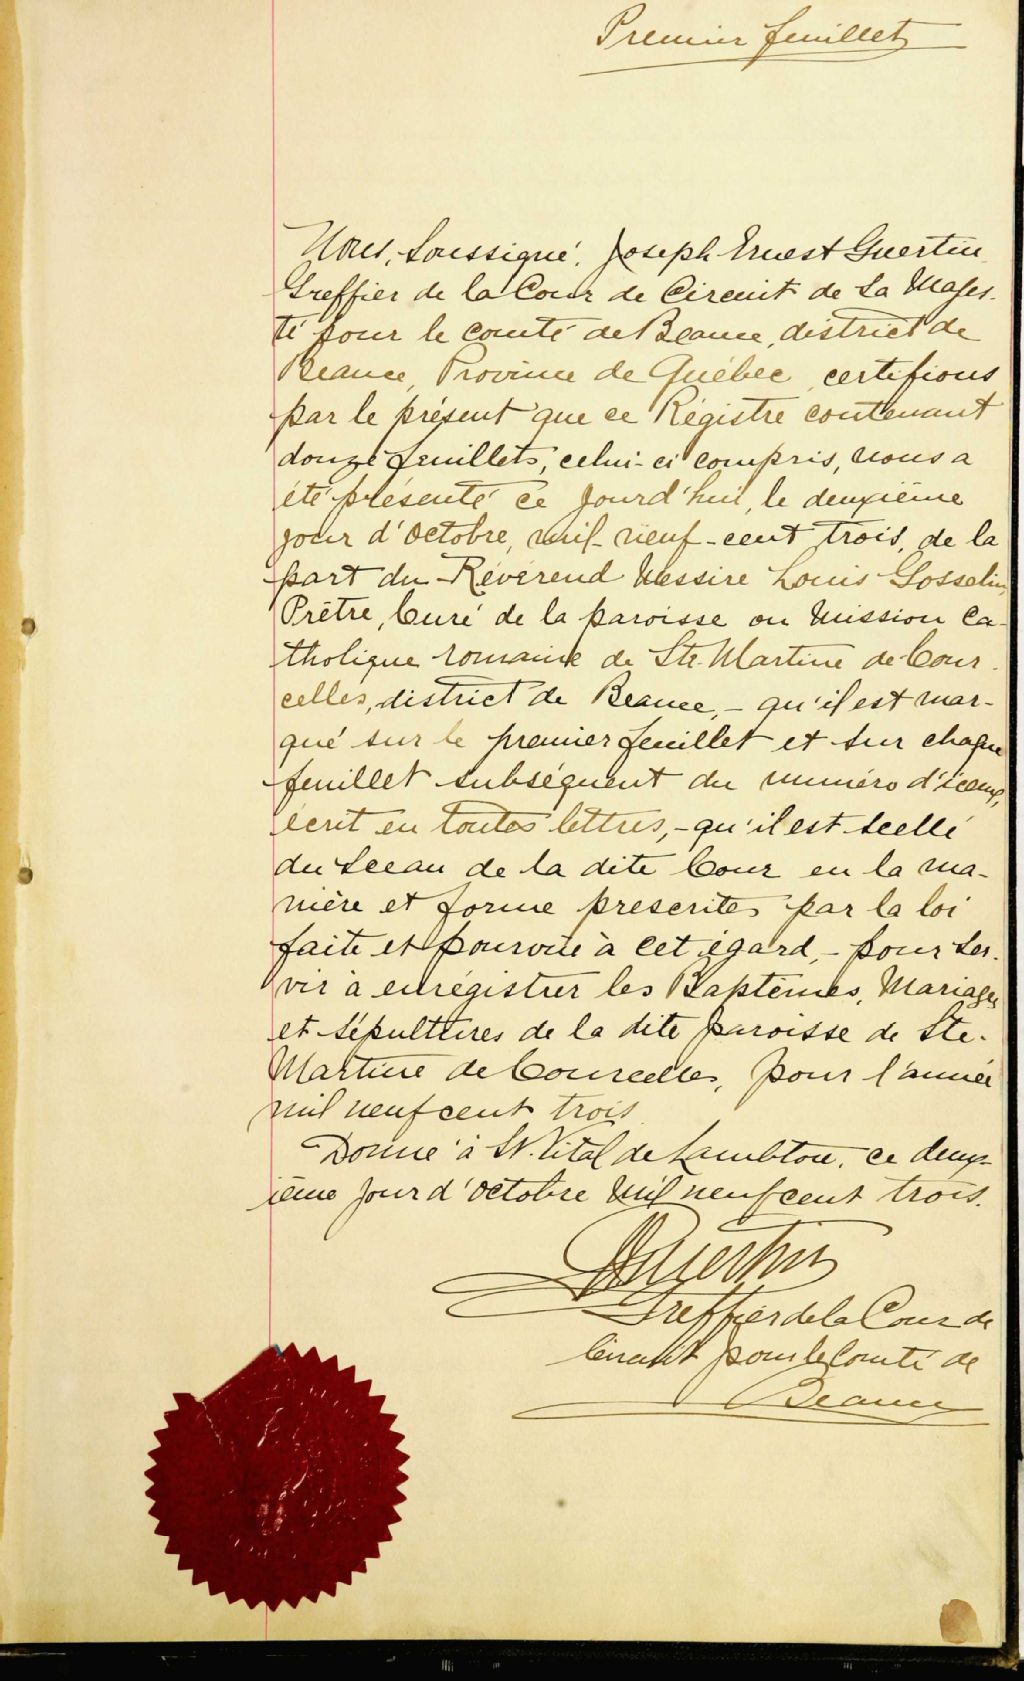 Premier feuillet
Nous, Soussigné, Joseph Ernest Guertin
Greffier de la Cour de Circuit de Sa Majes-
té pour le comté de Beauce, district de
Beauce, Province de Québec, certifions
par le présent que ce Régistre contenant
douze feuillets, celui-ci compris, nous a
été présenté ce jourd'hui, le deuxième
jour d'octobre, mil-neuf-cent trois, de la
part du Révérend Messire Louis Gosselin,
Prêtre, Curé de la paroisse ou mission ca-
tholique romaine de Ste Martine de Cour-
celles, district de Beauce, - qu'il est mar-
qué sur le premier feuillet et sur chaque
feuillet subséquent du numéro d'iceux,
écrit en toutes lettres, - qu'il est scellé
du Sceau de la dite Cour en la ma-
nière et forme prescrites par la loi
faite et pourvue à cet égard, - pour ser-
vir à enrégistrer les Baptêmes, Mariages
et Sépultures de la dite paroisse de Ste-
Martine de Courcelles, pour l'année
mil neuf cent trois
Donné à St. Vital de Lambton, ce deux-
ième jour d'octobre mil neuf cent trois.
Guertin
Greffier de la Cour de
Circuit pour le Comté de
Beauce